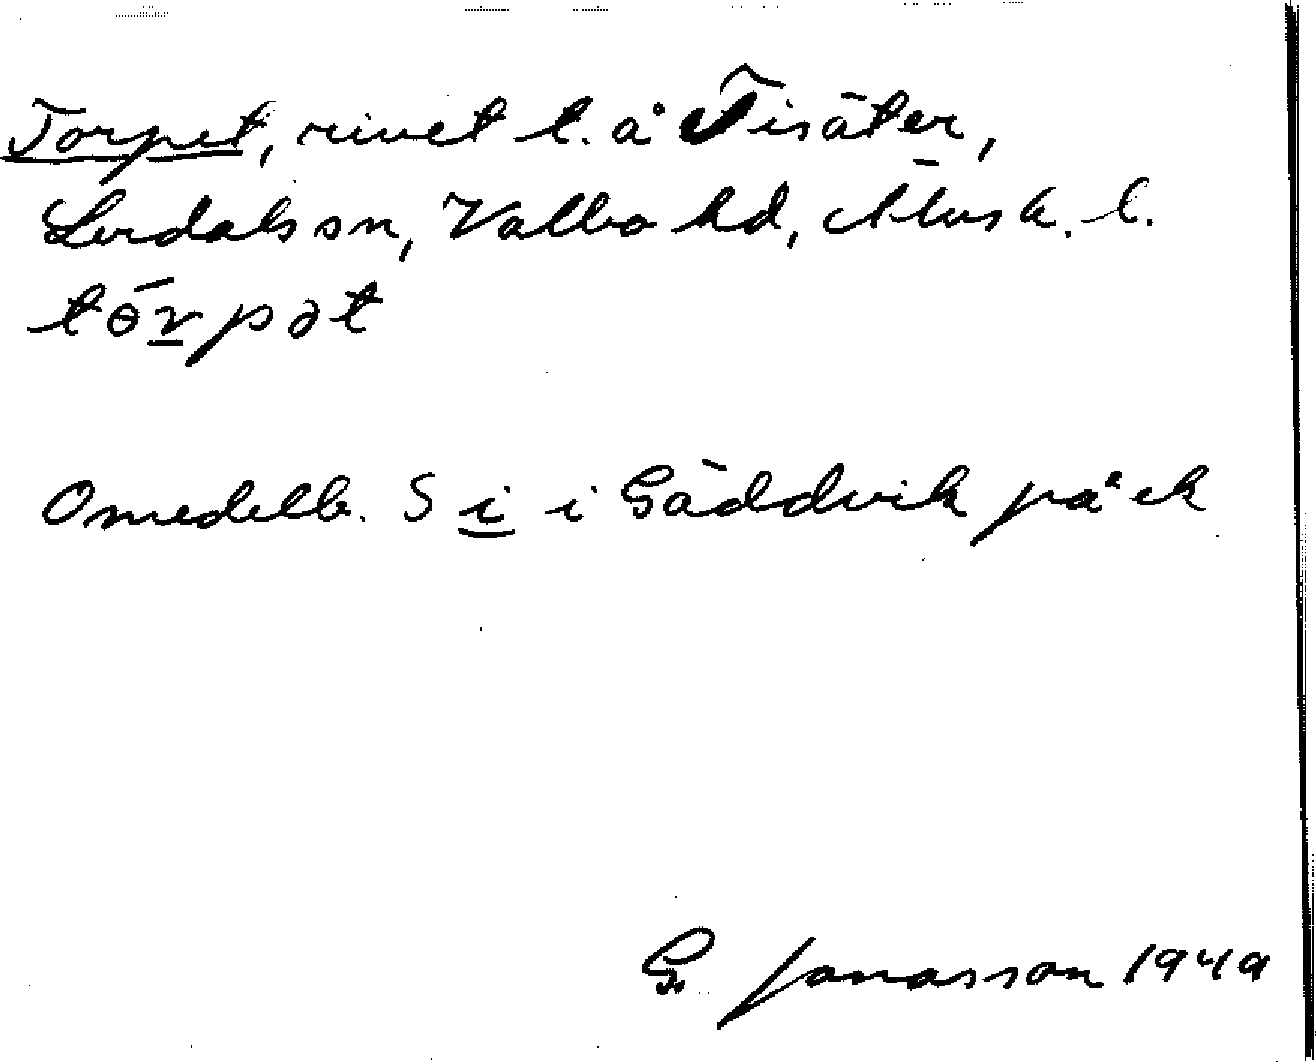 Torpet, rivet t. å Tisäter,
Lerdals sn, Valbo hd, Älvsb. l.
tɵ́rpət
Omedelb. S i i Gäddvik på ek
G. Jonasson 1949